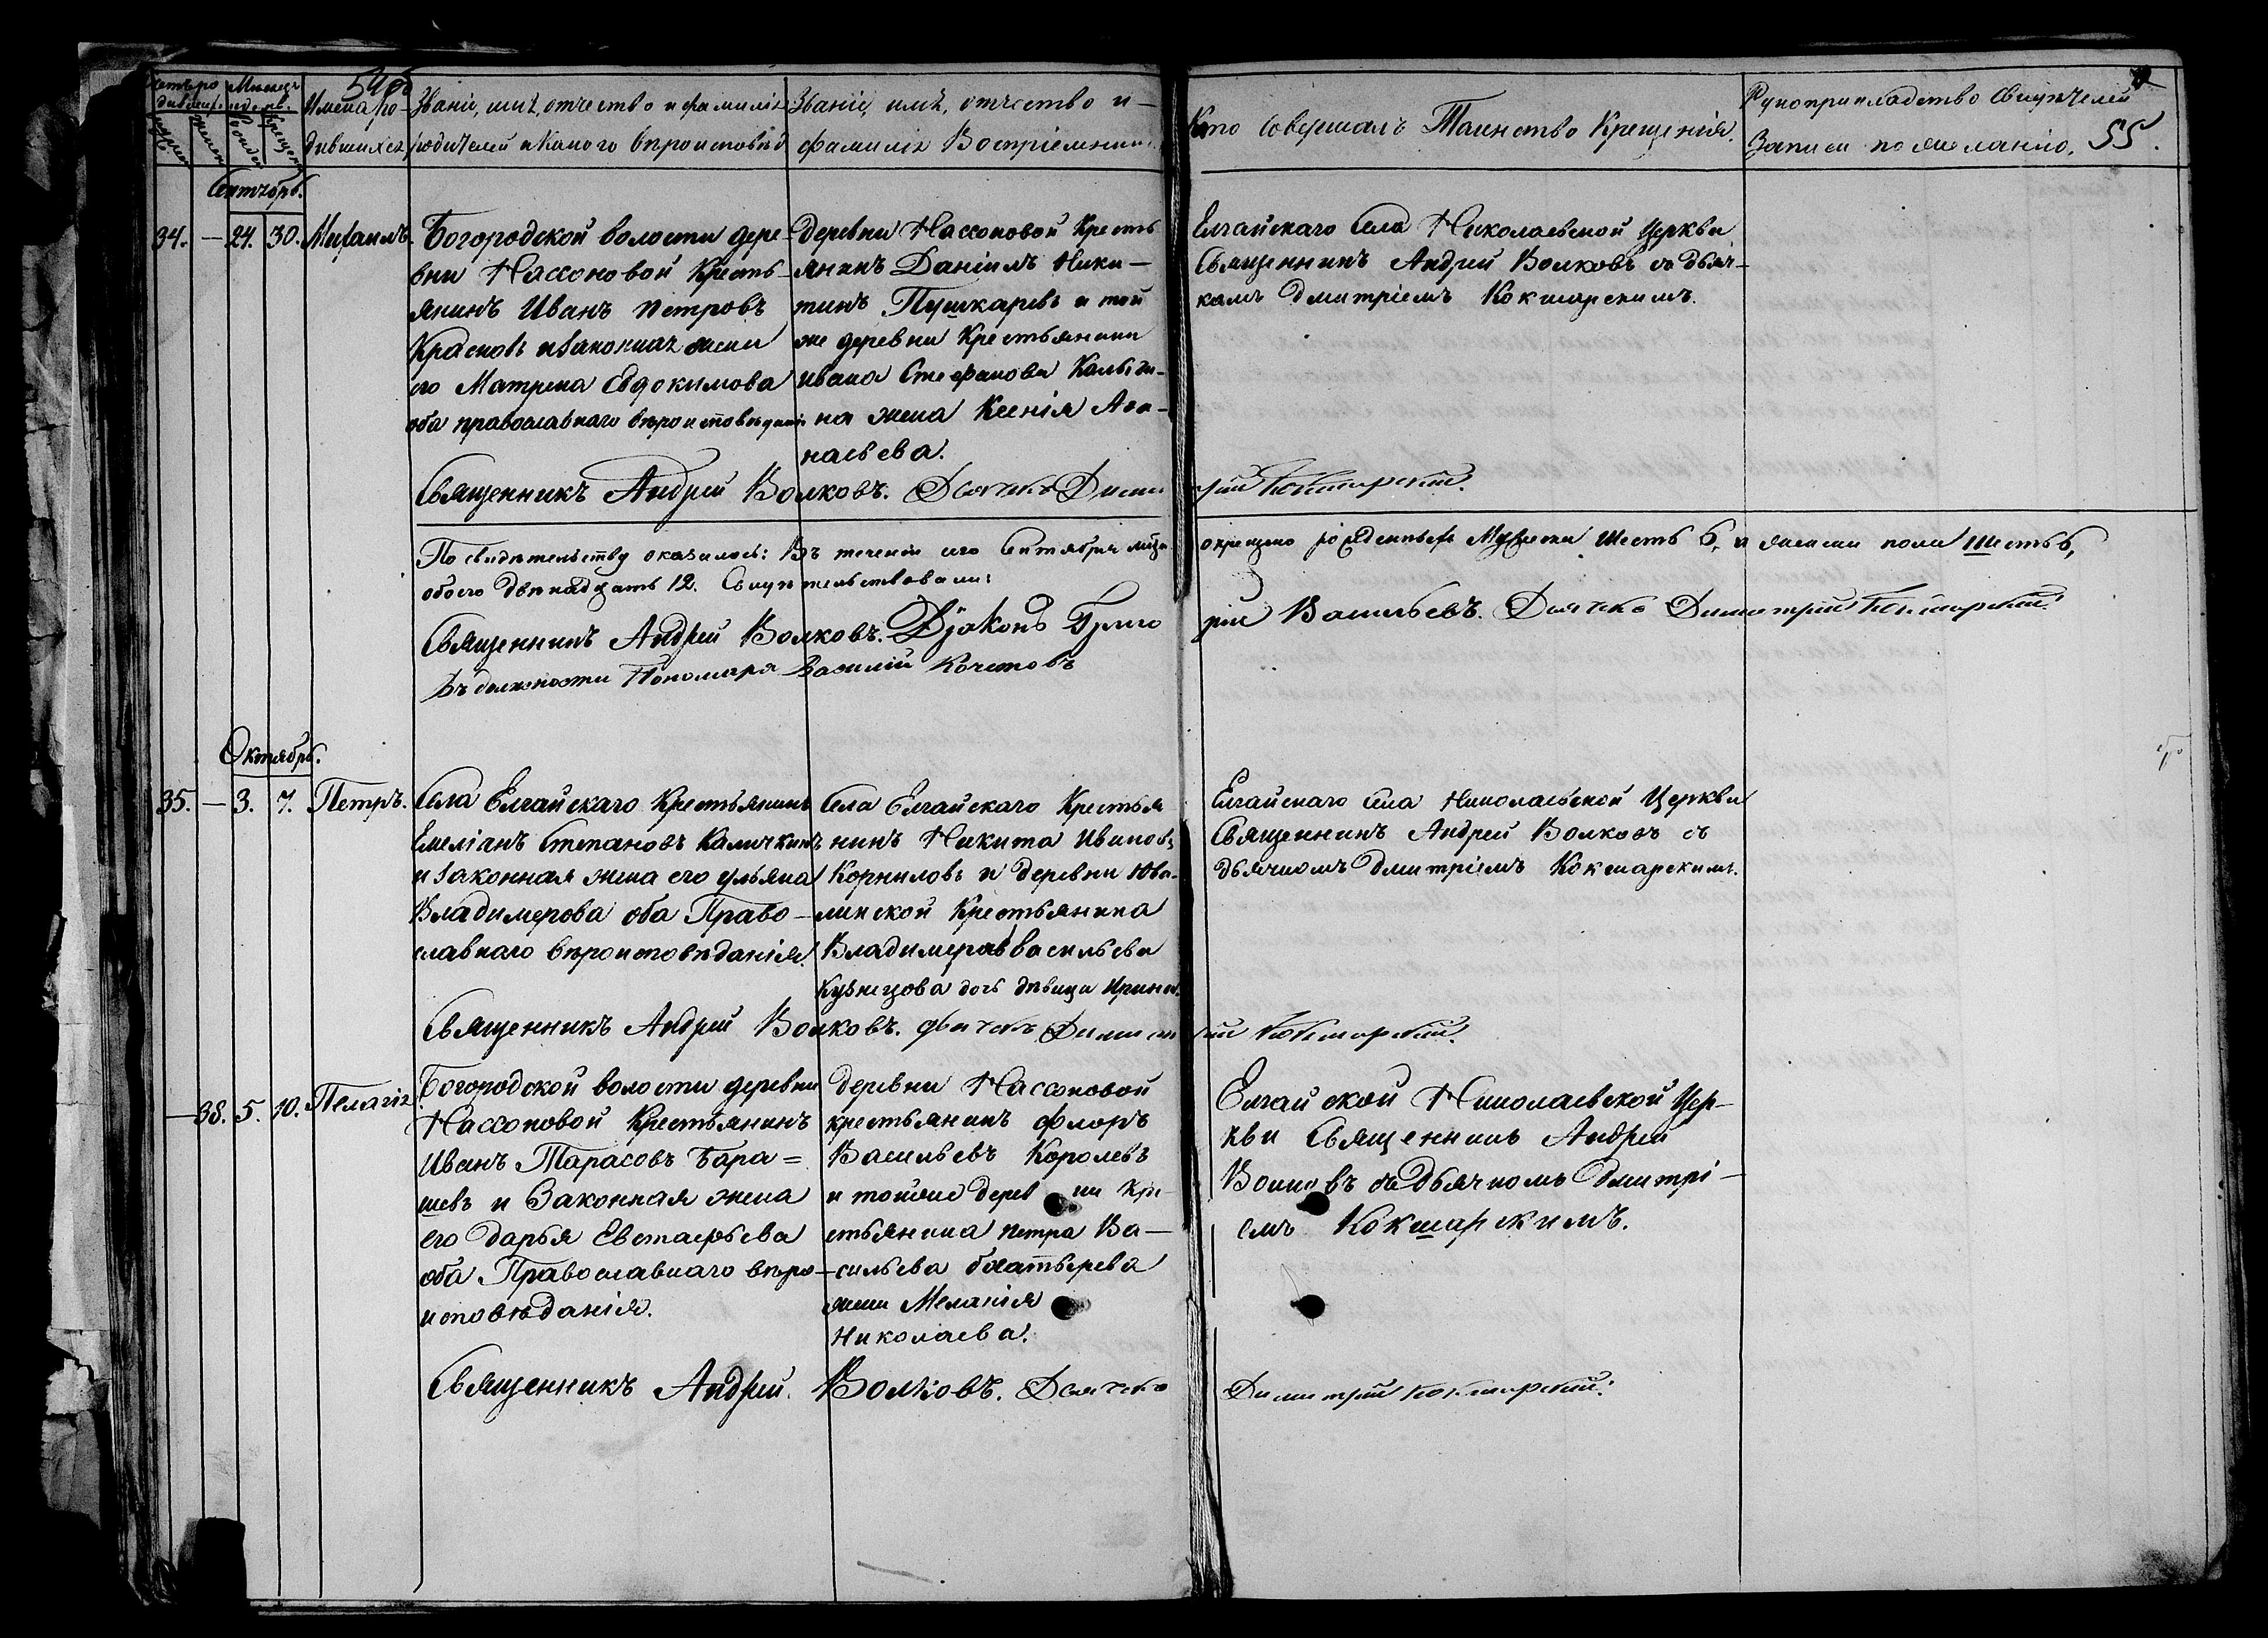 54об
Счетъ ро
дившихся
Мѣсяцъ
и день
мужеск
женск
рожден
крещен
Имена ро-
дившихся
Званіе, имя, отчество и фамилія
родителей и какого вѣроисповѣд
Званіе, имя, отчество и-
фамилія Воспріемник
Кто Совершалъ Таинство Крещенія
Рукоприкладство Свидѣтелей
Записи по желанію. 55.
Сентябрь.
34. — 24. 30. Михаилъ.
Богородской волости дере-
вни Нассоновой Кресть-
янинъ Иванъ Петровъ
Красновъ и законная жена
его Матрена Евдокимова
оба православнаго вѣроисповѣданія
Деревни Нассоновой Кресть
янинъ Даніилъ Ники-
тинъ Пушкаревъ и той
же деревни Крестьянина
Ивана Стефанова
на жена Ксенія Афа-
насьева.
Елгайскаго Села Николаевской Церкви
Священникъ Андрей Волковъ съ дьяч-
комъ Дмитріемъ Кокшарскимъ.
Священникъ Андрей Волковъ. Дьячекъ Димитрій Кокшарскій.
По свидѣтельству оказалось: Въ теченіи сего Сентября мѣсяца окрещено рожденныхъ Мужеска шесть 6, и женска пола шесть 6,
обоего двѣнадцать 12. Свидѣтельствовали:
Священникъ Андрей Волковъ. Діаконъ Григорій Васильевъ. Дьячекъ Димитрій Кокшарскій.
Въ должности Пономаря Василій Кочетовъ
Октябрь.
35. — 3. 7. Петръ.
Села Елгайскаго Крестьянинъ
Емеліанъ Степановъ Каличкинъ
и законная жена его Ульяна
Владимерова оба Право-
славнаго вѣроисповѣданія.
Села Елгайскаго Крестья
нинъ Никита Ивановъ
Корниловъ и деревни Юва-
линской Крестьянина
Владимера Васильева
Кузнецова дочь дѣвица Ирина.
Елгайскаго села Николаевской Церкви
Священникъ Андрей Волковъ съ
дьячкомъ Дмитріемъ Кокшарскимъ.
Священникъ Андрей Волковъ. Дьячекъ Димитрій Кокшарскій.
— 38. 5. 10. Пелагія
Богородской волости деревни
Нассоновой Крестьянинъ
Иванъ Тарасовъ Бара=
шевъ и Законная жена
его Дарья Евстафьева
оба Православнаго вѣро-
исповѣданія.
Деревни Нассоновой
крестьянинъ Флоръ
Васильевъ Королевъ
и тойже деревни Кре-
стьянина Петра Ва-
сильева
жена Меланія
Николаева.
Елгайской Николаевской Цер-
кви Священникъ Андрей
Волковъ съ Дьячкомъ Дмитрі-
емъ Кокшарскимъ.
Священникъ Андрей Волковъ. Дьячекъ Димитрій Кокшарскій.